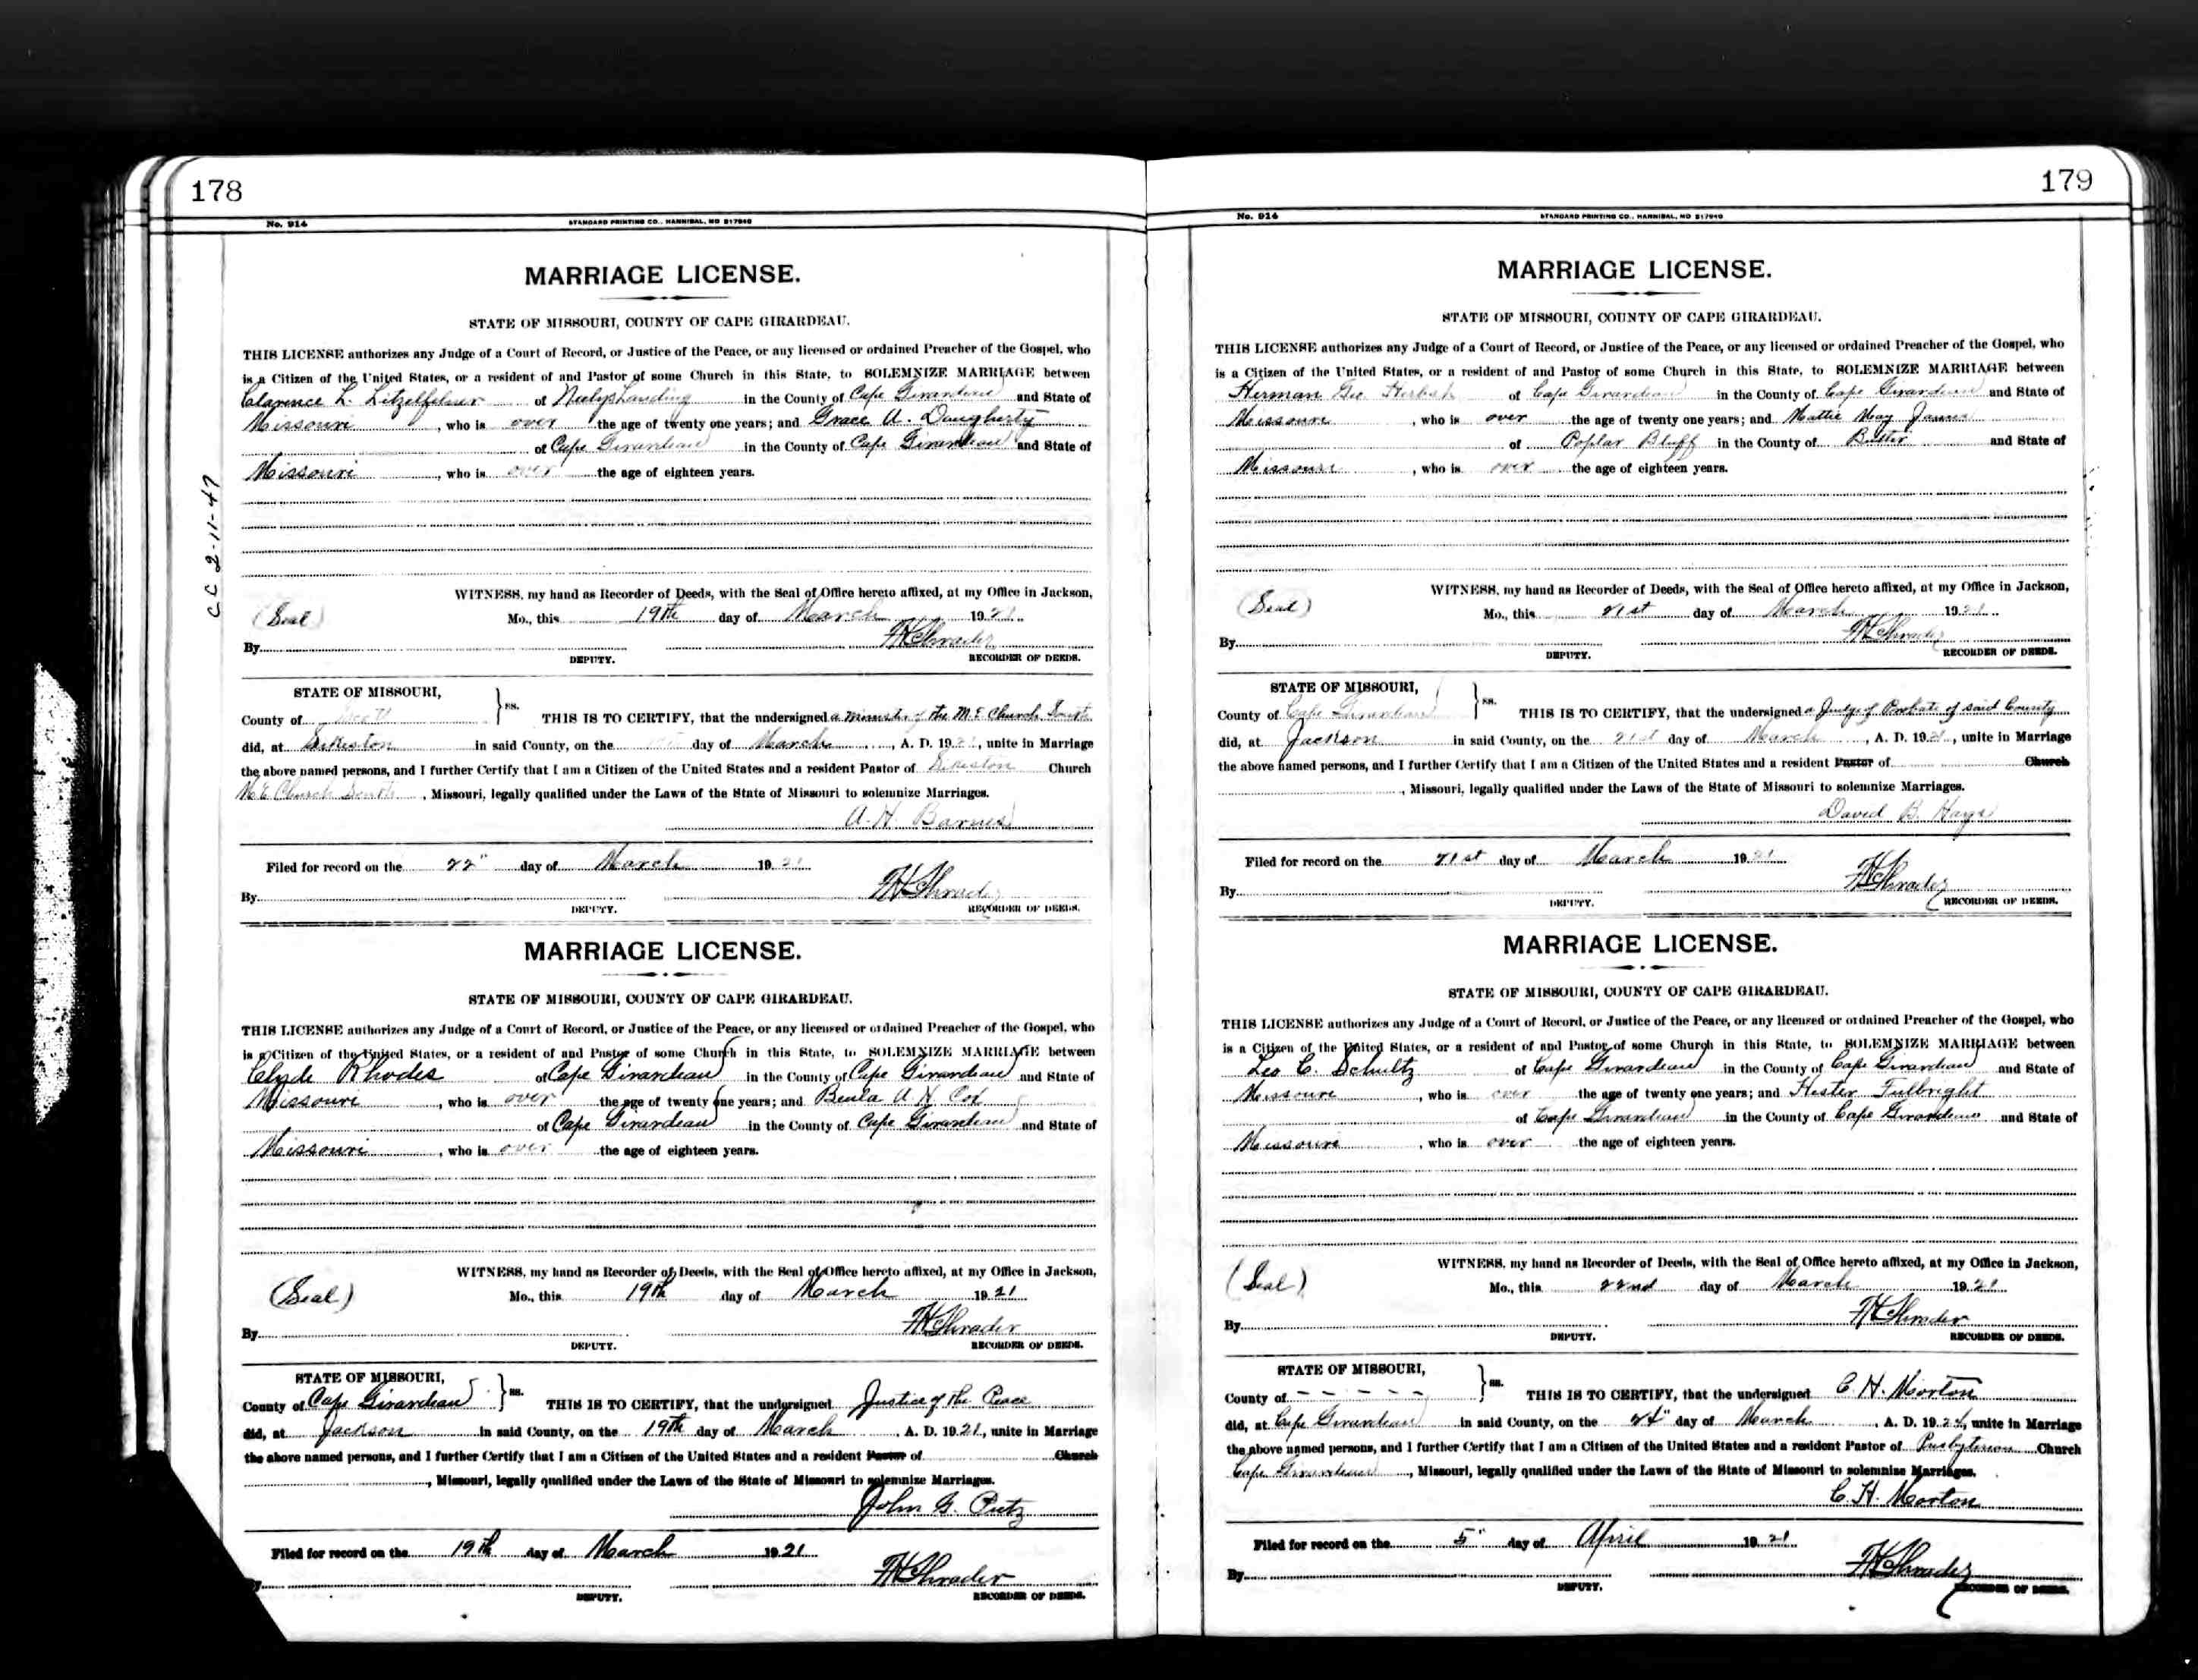 178
No. 914 STANDARD PRINTING CO., HANNIBAL, MO 217940
MARRIAGE LICENSE.
STATE OF MISSOURI, COUNTY OF CAPE GIRARDEAU.
THIS LICENSE authorizes any Judge of a Court of Record, or Justice of the Peace, or any licensed or ordained Preacher of the Gospel, who
is a Citizen of the United States, or a resident of and Pastor of some Church in this State, to SOLEMNIZE MARRIAGE between
Clarence L. Litzelfelner of Neelys Landing in the County of Cape Girardeau and State of
Missouri, who is over the age of twenty one years; and Grace A. Daugherty
of Cape Girardeau in the County of Cape Girardeau and State of
Missouri, who is over the age of eighteen years.
CC 2-11-47
WITNESS, my hand as Recorder of Deeds, with the Seal of Office hereto affixed, at my Office in Jackson,
(Seal) Mo., this 19th day of March 1921.
By HShrader
DEPUTY. RECORDER OF DEEDS.
STATE OF MISSOURI,
County of Scott } ss. THIS IS TO CERTIFY, that the undersigned a minister of the M.E. Church South
did, at Sikeston in said County, on the day of March, A. D. 1921, unite in Marriage
the above named persons, and I further Certify that I am a Citizen of the United States and a resident Pastor of Sikeston Church
M.E. Church South, Missouri, legally qualified under the Laws of the State of Missouri to solemnize Marriages.
A. H. Barnes
Filed for record on the 22" day of March 1921
By HShrader
DEPUTY. RECORDER OF DEEDS.
MARRIAGE LICENSE.
STATE OF MISSOURI, COUNTY OF CAPE GIRARDEAU.
THIS LICENSE authorizes any Judge of a Court of Record, or Justice of the Peace, or any licensed or ordained Preacher of the Gospel, who
is a Citizen of the United States, or a resident of and Pastor of some Church in this State, to SOLEMNIZE MARRIAGE between
Clyde Rhodes of Cape Girardeau in the County of Cape Girardeau and State of
Missouri, who is over the age of twenty one years; and Beula A. H. Cox
of Cape Girardeau in the County of Cape Girardeau and State of
Missouri, who is over the age of eighteen years.
WITNESS, my hand as Recorder of Deeds, with the Seal of Office hereto affixed, at my Office in Jackson,
(Seal) Mo., this 19th day of March 1921.
By HShrader
DEPUTY. RECORDER OF DEEDS.
STATE OF MISSOURI,
County of Cape Girardeau } ss. THIS IS TO CERTIFY, that the undersigned Justice of the Peace
did, at Jackson in said County, on the 19th day of March, A. D. 1921, unite in Marriage
the above named persons, and I further Certify that I am a Citizen of the United States and a resident Pastor of Church
, Missouri, legally qualified under the Laws of the State of Missouri to solemnize Marriages.
John G. Putz
Filed for record on the 19th day of March 1921
By HShrader
DEPUTY. RECORDER OF DEEDS.
179
No. 914 STANDARD PRINTING CO., HANNIBAL, MO 217940
MARRIAGE LICENSE.
STATE OF MISSOURI, COUNTY OF CAPE GIRARDEAU.
THIS LICENSE authorizes any Judge of a Court of Record, or Justice of the Peace, or any licensed or ordained Preacher of the Gospel, who
is a Citizen of the United States, or a resident of and Pastor of some Church in this State, to SOLEMNIZE MARRIAGE between
Herman Geo. Herbst of Cape Girardeau in the County of Cape Girardeau and State of
Missouri, who is over the age of twenty one years; and Mattie May
of Poplar Bluff in the County of Butler and State of
Missouri, who is over the age of eighteen years.
WITNESS, my hand as Recorder of Deeds, with the Seal of Office hereto affixed, at my Office in Jackson,
(Seal) Mo., this 21st day of March 1921.
By HShrader
DEPUTY. RECORDER OF DEEDS.
STATE OF MISSOURI,
County of Cape Girardeau } ss. THIS IS TO CERTIFY, that the undersigned a Judge of Probate of said County
did, at Jackson in said County, on the 21st day of March, A. D. 1921, unite in Marriage
the above named persons, and I further Certify that I am a Citizen of the United States and a resident Pastor of Church
, Missouri, legally qualified under the Laws of the State of Missouri to solemnize Marriages.
David B. Hays
Filed for record on the 21st day of March 1921
By HShrader
DEPUTY. RECORDER OF DEEDS.
MARRIAGE LICENSE.
STATE OF MISSOURI, COUNTY OF CAPE GIRARDEAU.
THIS LICENSE authorizes any Judge of a Court of Record, or Justice of the Peace, or any licensed or ordained Preacher of the Gospel, who
is a Citizen of the United States, or a resident of and Pastor of some Church in this State, to SOLEMNIZE MARRIAGE between
Leo C. Schultz of Cape Girardeau in the County of Cape Girardeau and State of
Missouri, who is over the age of twenty one years; and Hester Fulbright
of Cape Girardeau in the County of Cape Girardeau and State of
Missouri, who is over the age of eighteen years.
WITNESS, my hand as Recorder of Deeds, with the Seal of Office hereto affixed, at my Office in Jackson,
(Seal) Mo., this 22nd day of March 1921.
By HShrader
DEPUTY. RECORDER OF DEEDS.
STATE OF MISSOURI,
County of - - - - - } ss. THIS IS TO CERTIFY, that the undersigned C. H. Morton
did, at Cape Girardeau in said County, on the 24" day of March, A. D. 1921, unite in Marriage
the above named persons, and I further Certify that I am a Citizen of the United States and a resident Pastor of Presbyterian Church
Cape Girardeau, Missouri, legally qualified under the Laws of the State of Missouri to solemnize Marriages.
C. H. Morton
Filed for record on the 5" day of April 1921.
By HShrader
DEPUTY. RECORDER OF DEEDS.